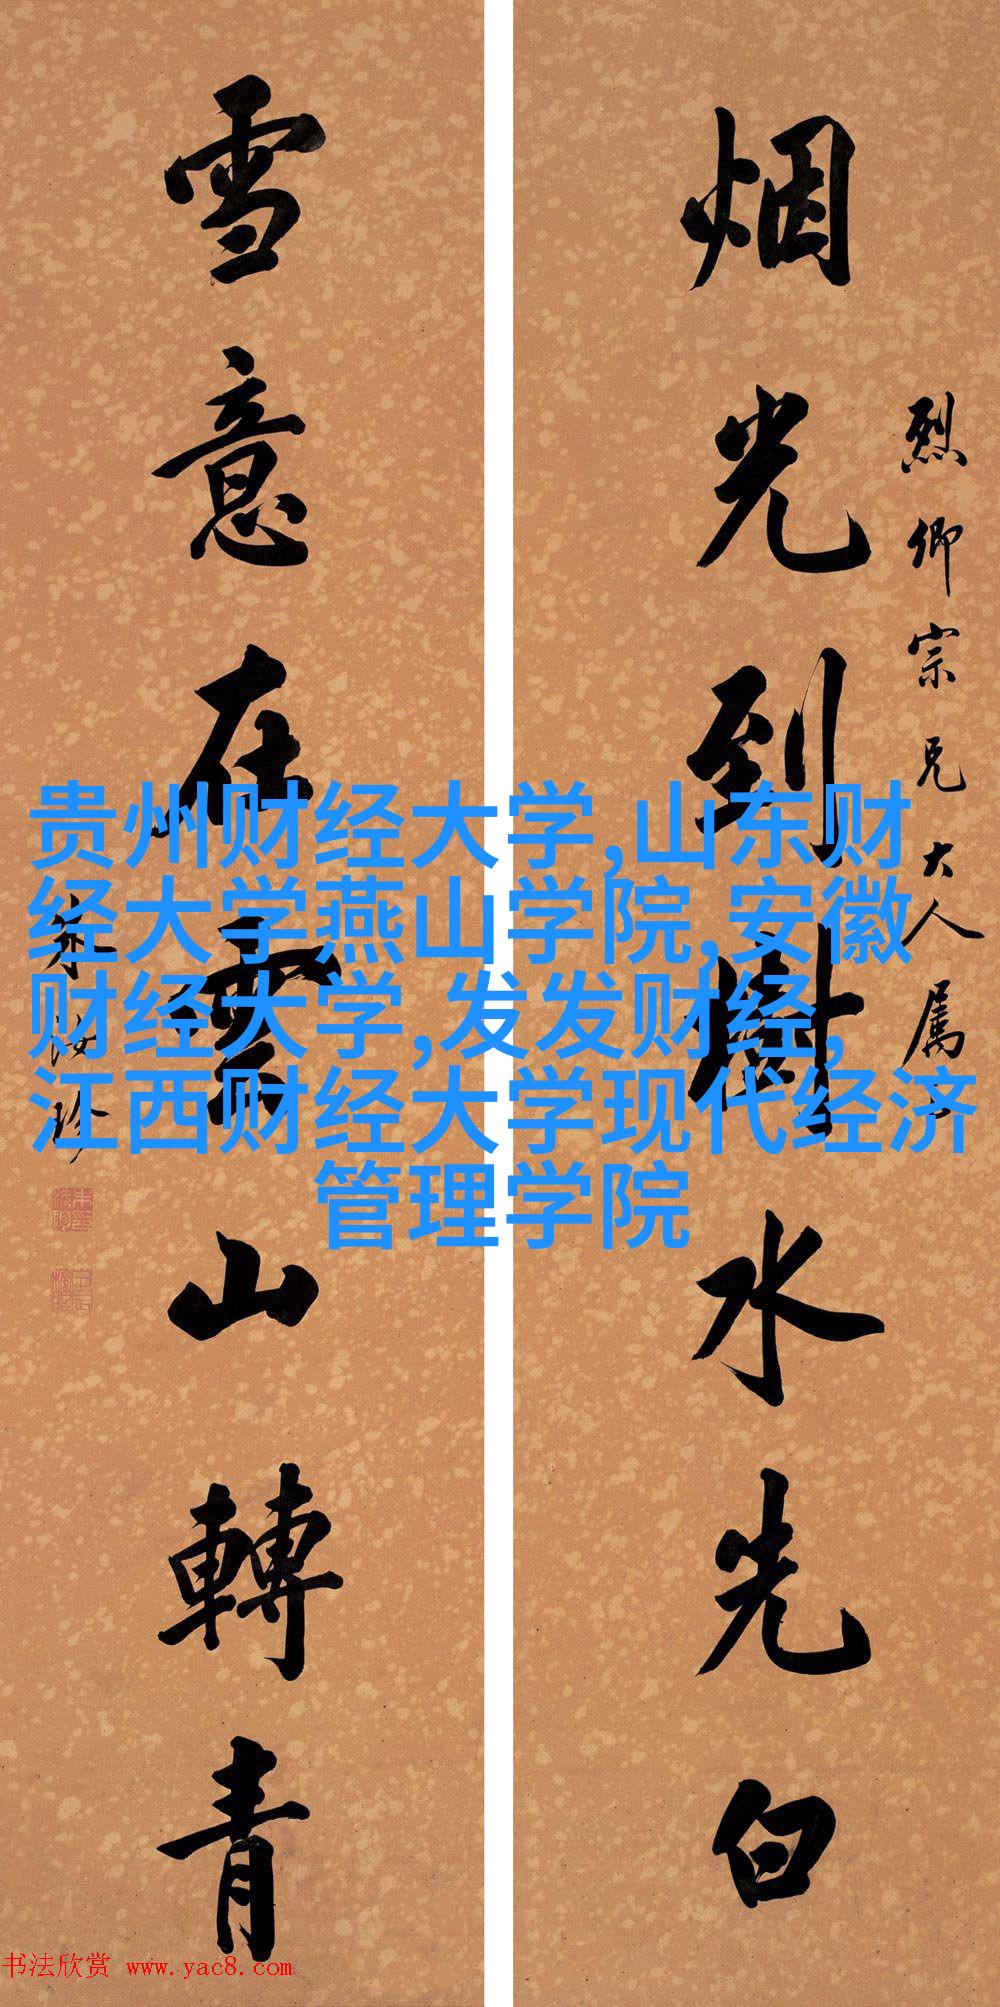 烈卿宗兄大人属
烟光到樹水先白
雪意在雲山轉青
朱汝珍
贵州财经大学,山东财
经大学燕山学院,安徽
财经大学,发发财经,
江西财经大学现代经济
管理学院
书法欣赏 www.yac8.com